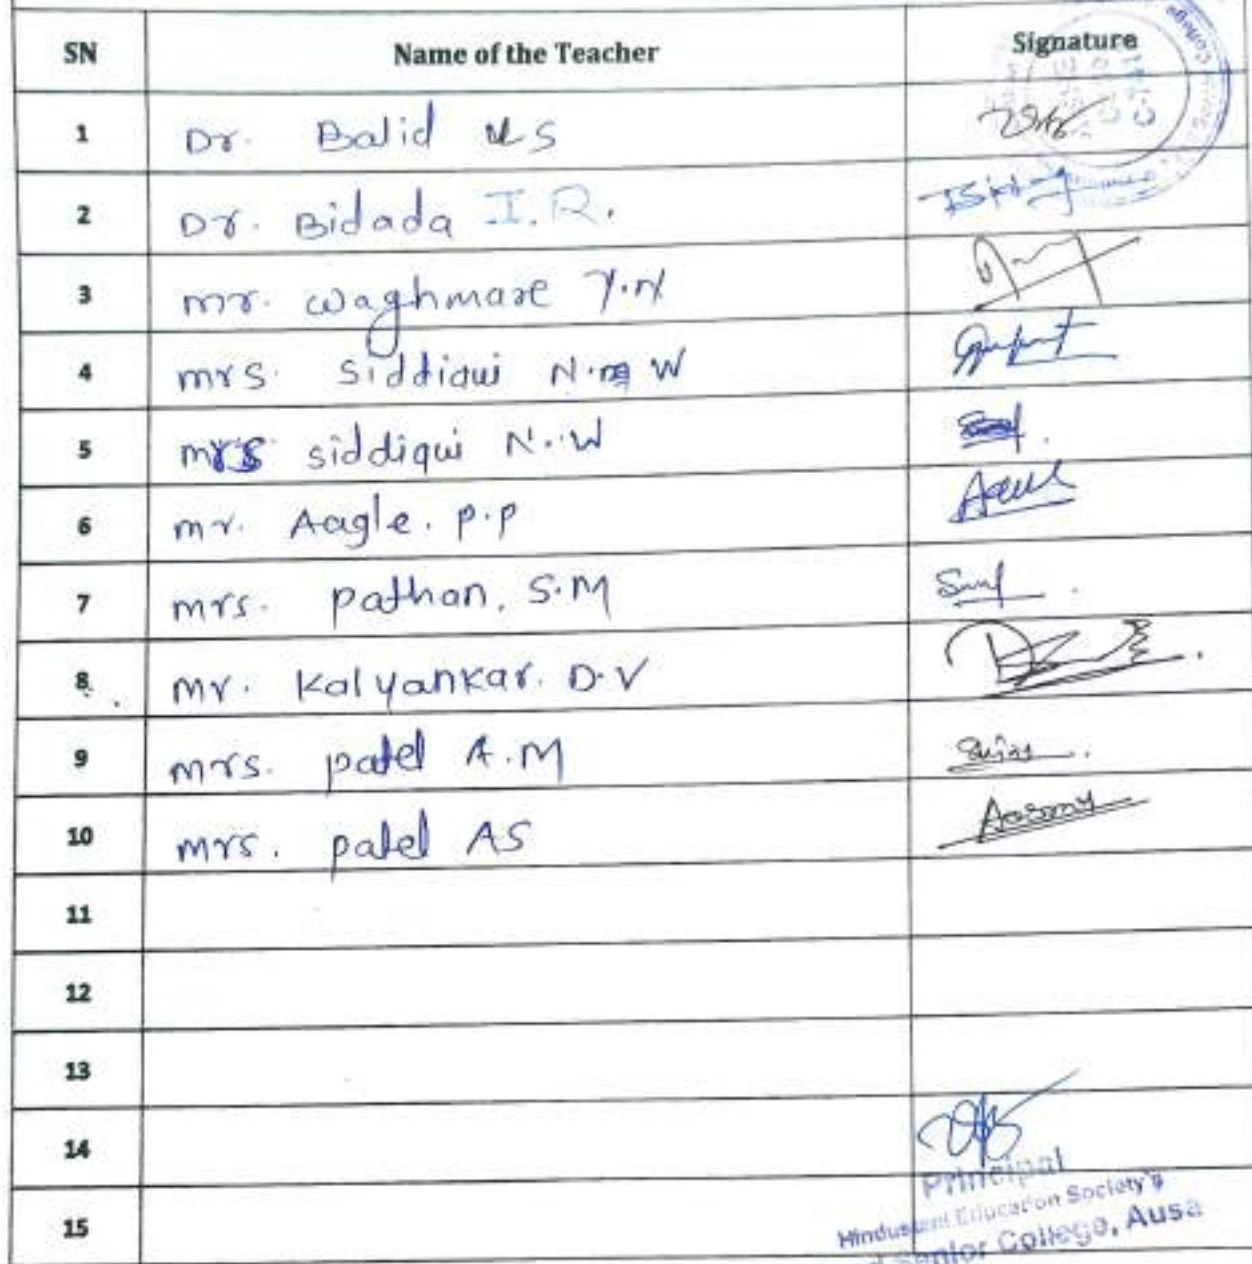 SN Name of the Teacher Signature
1 Dr. Balid US
2 Dr. Bidada I.R.
3 mr. waghmare Y.N
4 mrs. Siddiqui N.m W
5 mrs siddiqui N.W
6 mr. Aagle. p.p
7 mrs. pathan, S.M
8 mr. Kalyankar. D.V
9 mrs. patel A.M
10 mrs. patel AS
11
12
13
14
Principal
Hindustani Education Society's
15
Senior College, Ausa